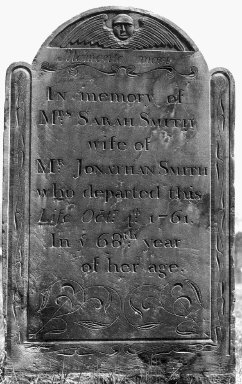 Memento mori
In memory of
Mrs SARAH SMITH
wife of
Mr JONATHAN SMITH
who departed this
Life Octr 4th 1761.
In ye 68th year
of her age.